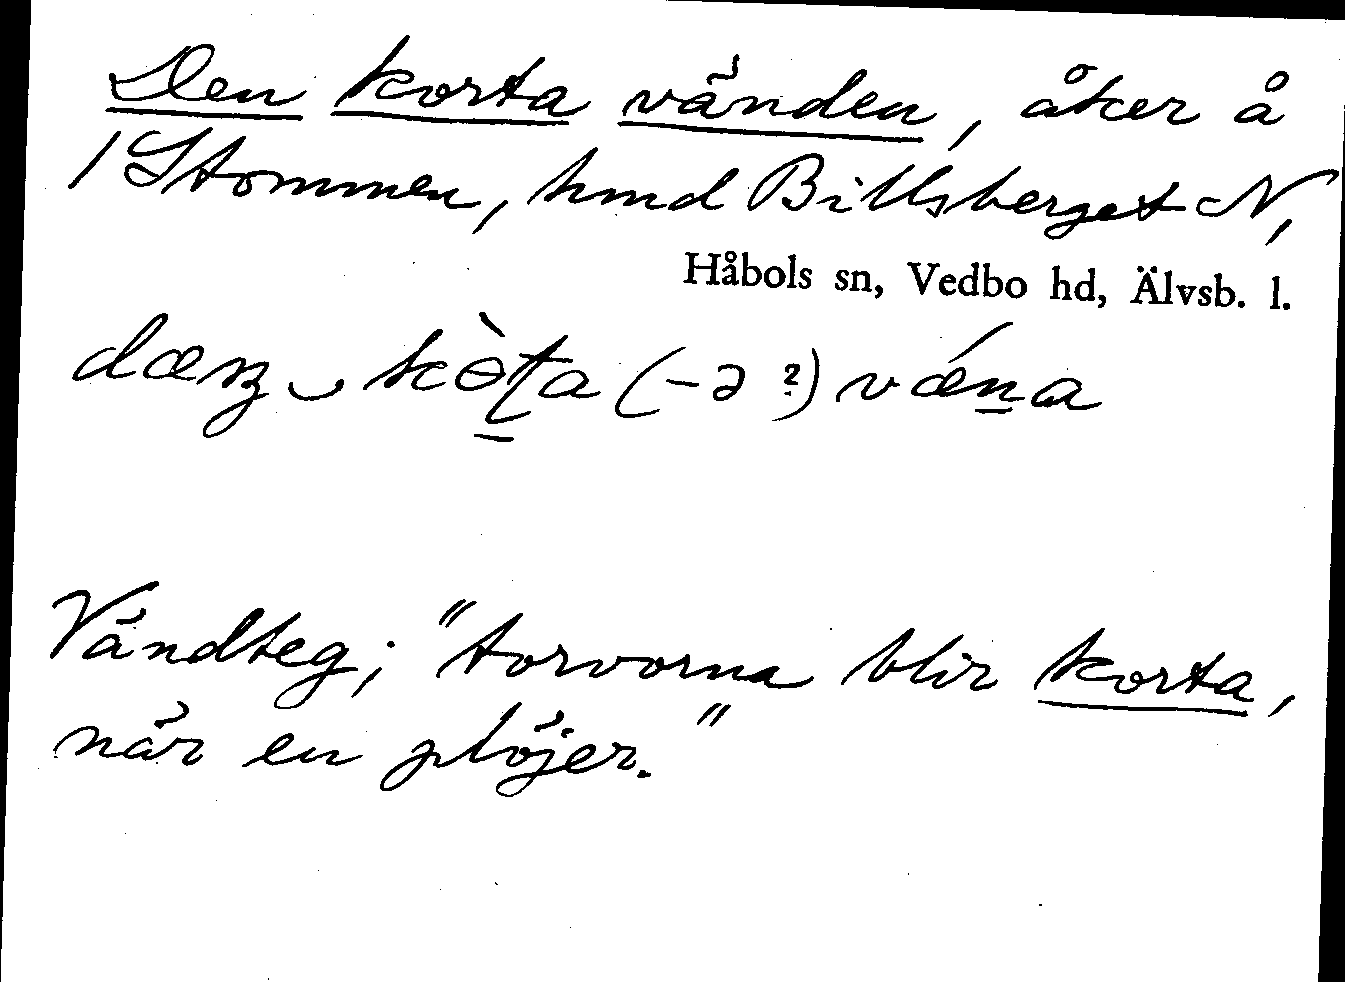 Den korta vänden, åker å
1 Stommen, hmd Billsberget N,
Håbols sn, Vedbo hd, Älvsb. l.
dæn‿kɵ̀ʈa (-ə ?) vǽna
Vändteg; "torvorna blir korta,
när en plöjer."